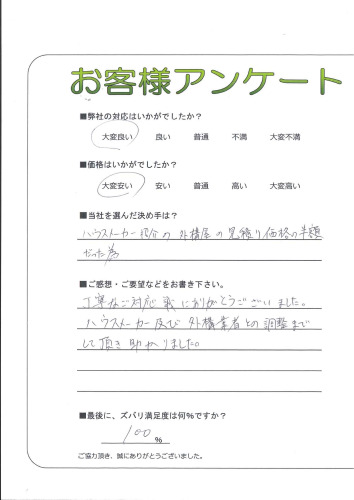 お客様アンケート
■弊社の対応はいかがでしたか？
大変良い 良い 普通 不満 大変不満
■価格はいかがでしたか？
大変安い 安い 普通 高い 大変高い
■当社を選んだ決め手は？
ハウスメーカー紹介の外構屋の見積り価格の半額
だった為
■ご感想・ご要望などをお書き下さい。
丁寧なご対応 誠にありがとうございました。
ハウスメーカー及び外構業者との調整まで
して頂き助かりました。
■最後に、ズバリ満足度は何％ですか？
100 ％
ご協力頂き、誠にありがとうございました。